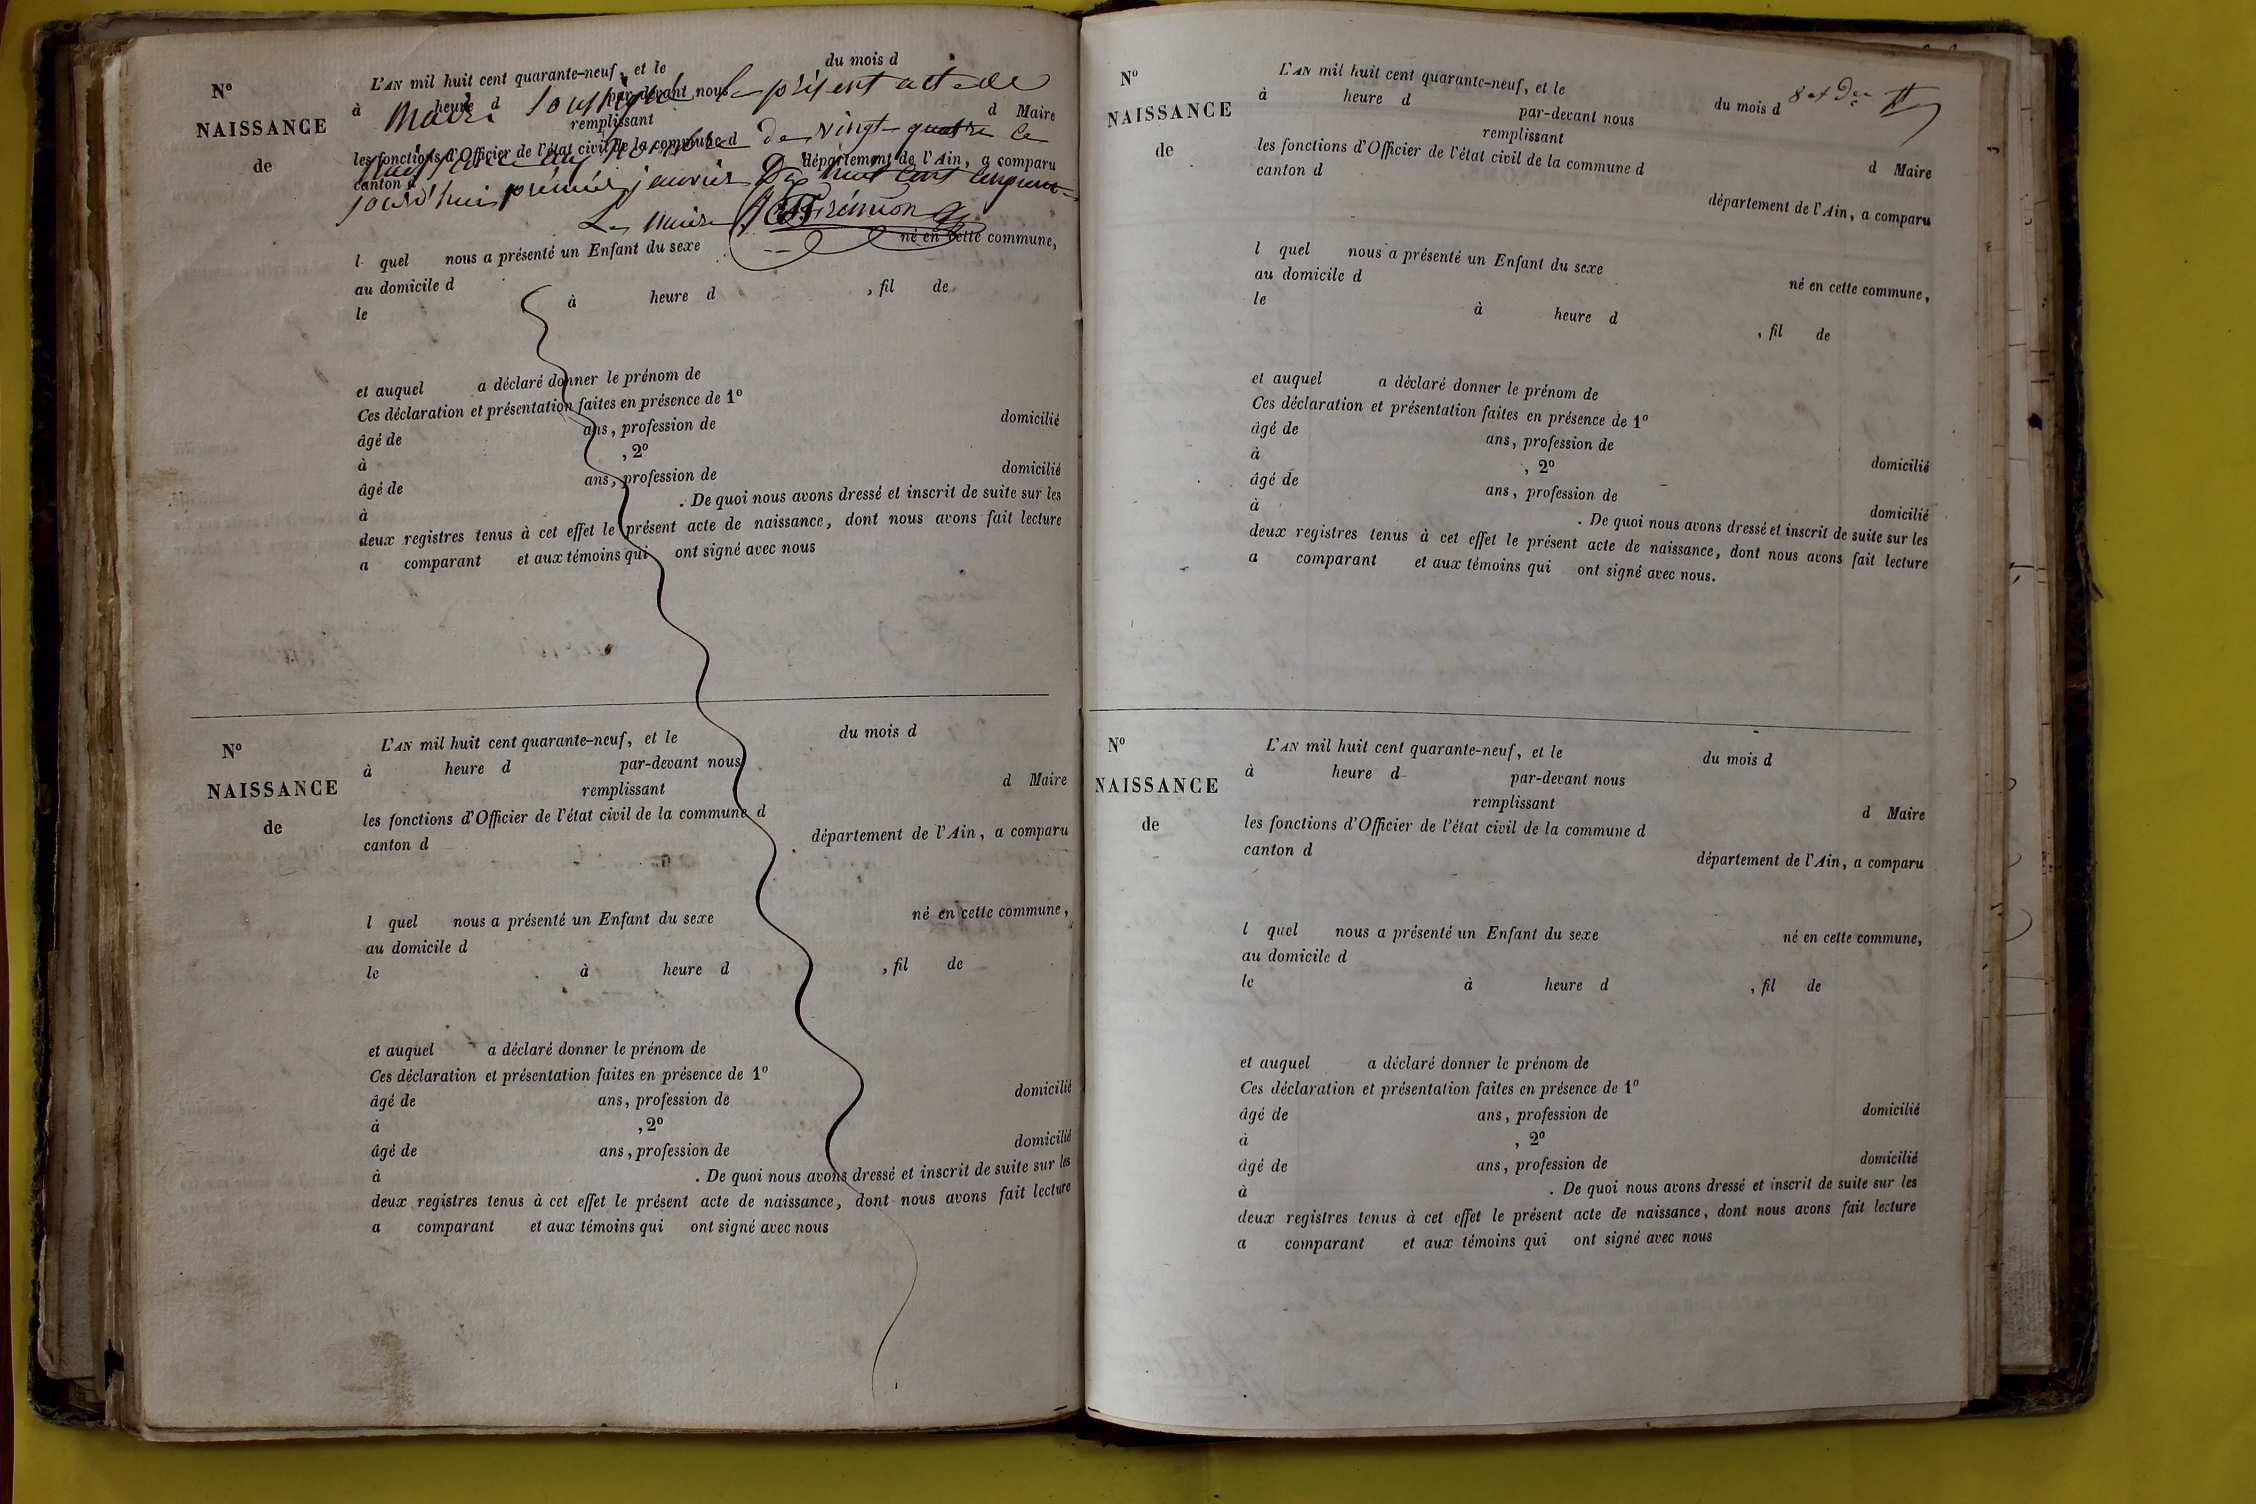 N°
NAISSANCE
de
L'AN mil huit cent quarante-neuf, et le du mois d
à heure d par-devant nous
d Maire
remplissant
les fonctions d'Officier de l'état civil de la commune d
canton d département de l'Ain, a comparu
maire soussigné le présent acte de
naissance au nombre de vingt quatre ce
jourd'hui premier janvier mil huit cent cinquante
Le maire
l quel nous a présenté un Enfant du sexe né en cette commune,
au domicile d
le à heure d , fil de
et auquel a déclaré donner le prénom de
Ces déclaration et présentation faites en présence de 1°
âgé de ans, profession de domicilié
à , 2°
âgé de ans, profession de domicilié
à . De quoi nous avons dressé et inscrit de suite sur les
deux registres tenus à cet effet le présent acte de naissance, dont nous avons fait lecture
a comparant et aux témoins qui ont signé avec nous
N°
NAISSANCE
de
L'AN mil huit cent quarante-neuf, et le du mois d
à heure d par-devant nous
d Maire
remplissant
les fonctions d'Officier de l'état civil de la commune d
canton d département de l'Ain, a comparu
l quel nous a présenté un Enfant du sexe né en cette commune,
au domicile d
le à heure d , fil de
et auquel a déclaré donner le prénom de
Ces déclaration et présentation faites en présence de 1°
âgé de ans, profession de domicilié
à , 2°
âgé de ans, profession de domicilié
à . De quoi nous avons dressé et inscrit de suite sur les
deux registres tenus à cet effet le présent acte de naissance, dont nous avons fait lecture
a comparant et aux témoins qui ont signé avec nous
N°
NAISSANCE
de
L'AN mil huit cent quarante-neuf, et le du mois d
à heure d par-devant nous
remplissant d Maire
les fonctions d'Officier de l'état civil de la commune d
canton d département de l'Ain, a comparu
l quel nous a présenté un Enfant du sexe né en cette commune,
au domicile d
le à heure d , fil de
et auquel a déclaré donner le prénom de
Ces déclaration et présentation faites en présence de 1°
âgé de ans, profession de domicilié
à , 2°
âgé de ans, profession de domicilié
à . De quoi nous avons dressé et inscrit de suite sur les
deux registres tenus à cet effet le présent acte de naissance, dont nous avons fait lecture
a comparant et aux témoins qui ont signé avec nous.
N°
NAISSANCE
de
L'AN mil huit cent quarante-neuf, et le du mois d
à heure d par-devant nous
remplissant d Maire
les fonctions d'Officier de l'état civil de la commune d
canton d département de l'Ain, a comparu
l quel nous a présenté un Enfant du sexe né en cette commune,
au domicile d
le à heure d , fil de
et auquel a déclaré donner le prénom de
Ces déclaration et présentation faites en présence de 1°
âgé de ans, profession de domicilié
à , 2°
âgé de ans, profession de domicilié
à . De quoi nous avons dressé et inscrit de suite sur les
deux registres tenus à cet effet le présent acte de naissance, dont nous avons fait lecture
a comparant et aux témoins qui ont signé avec nous